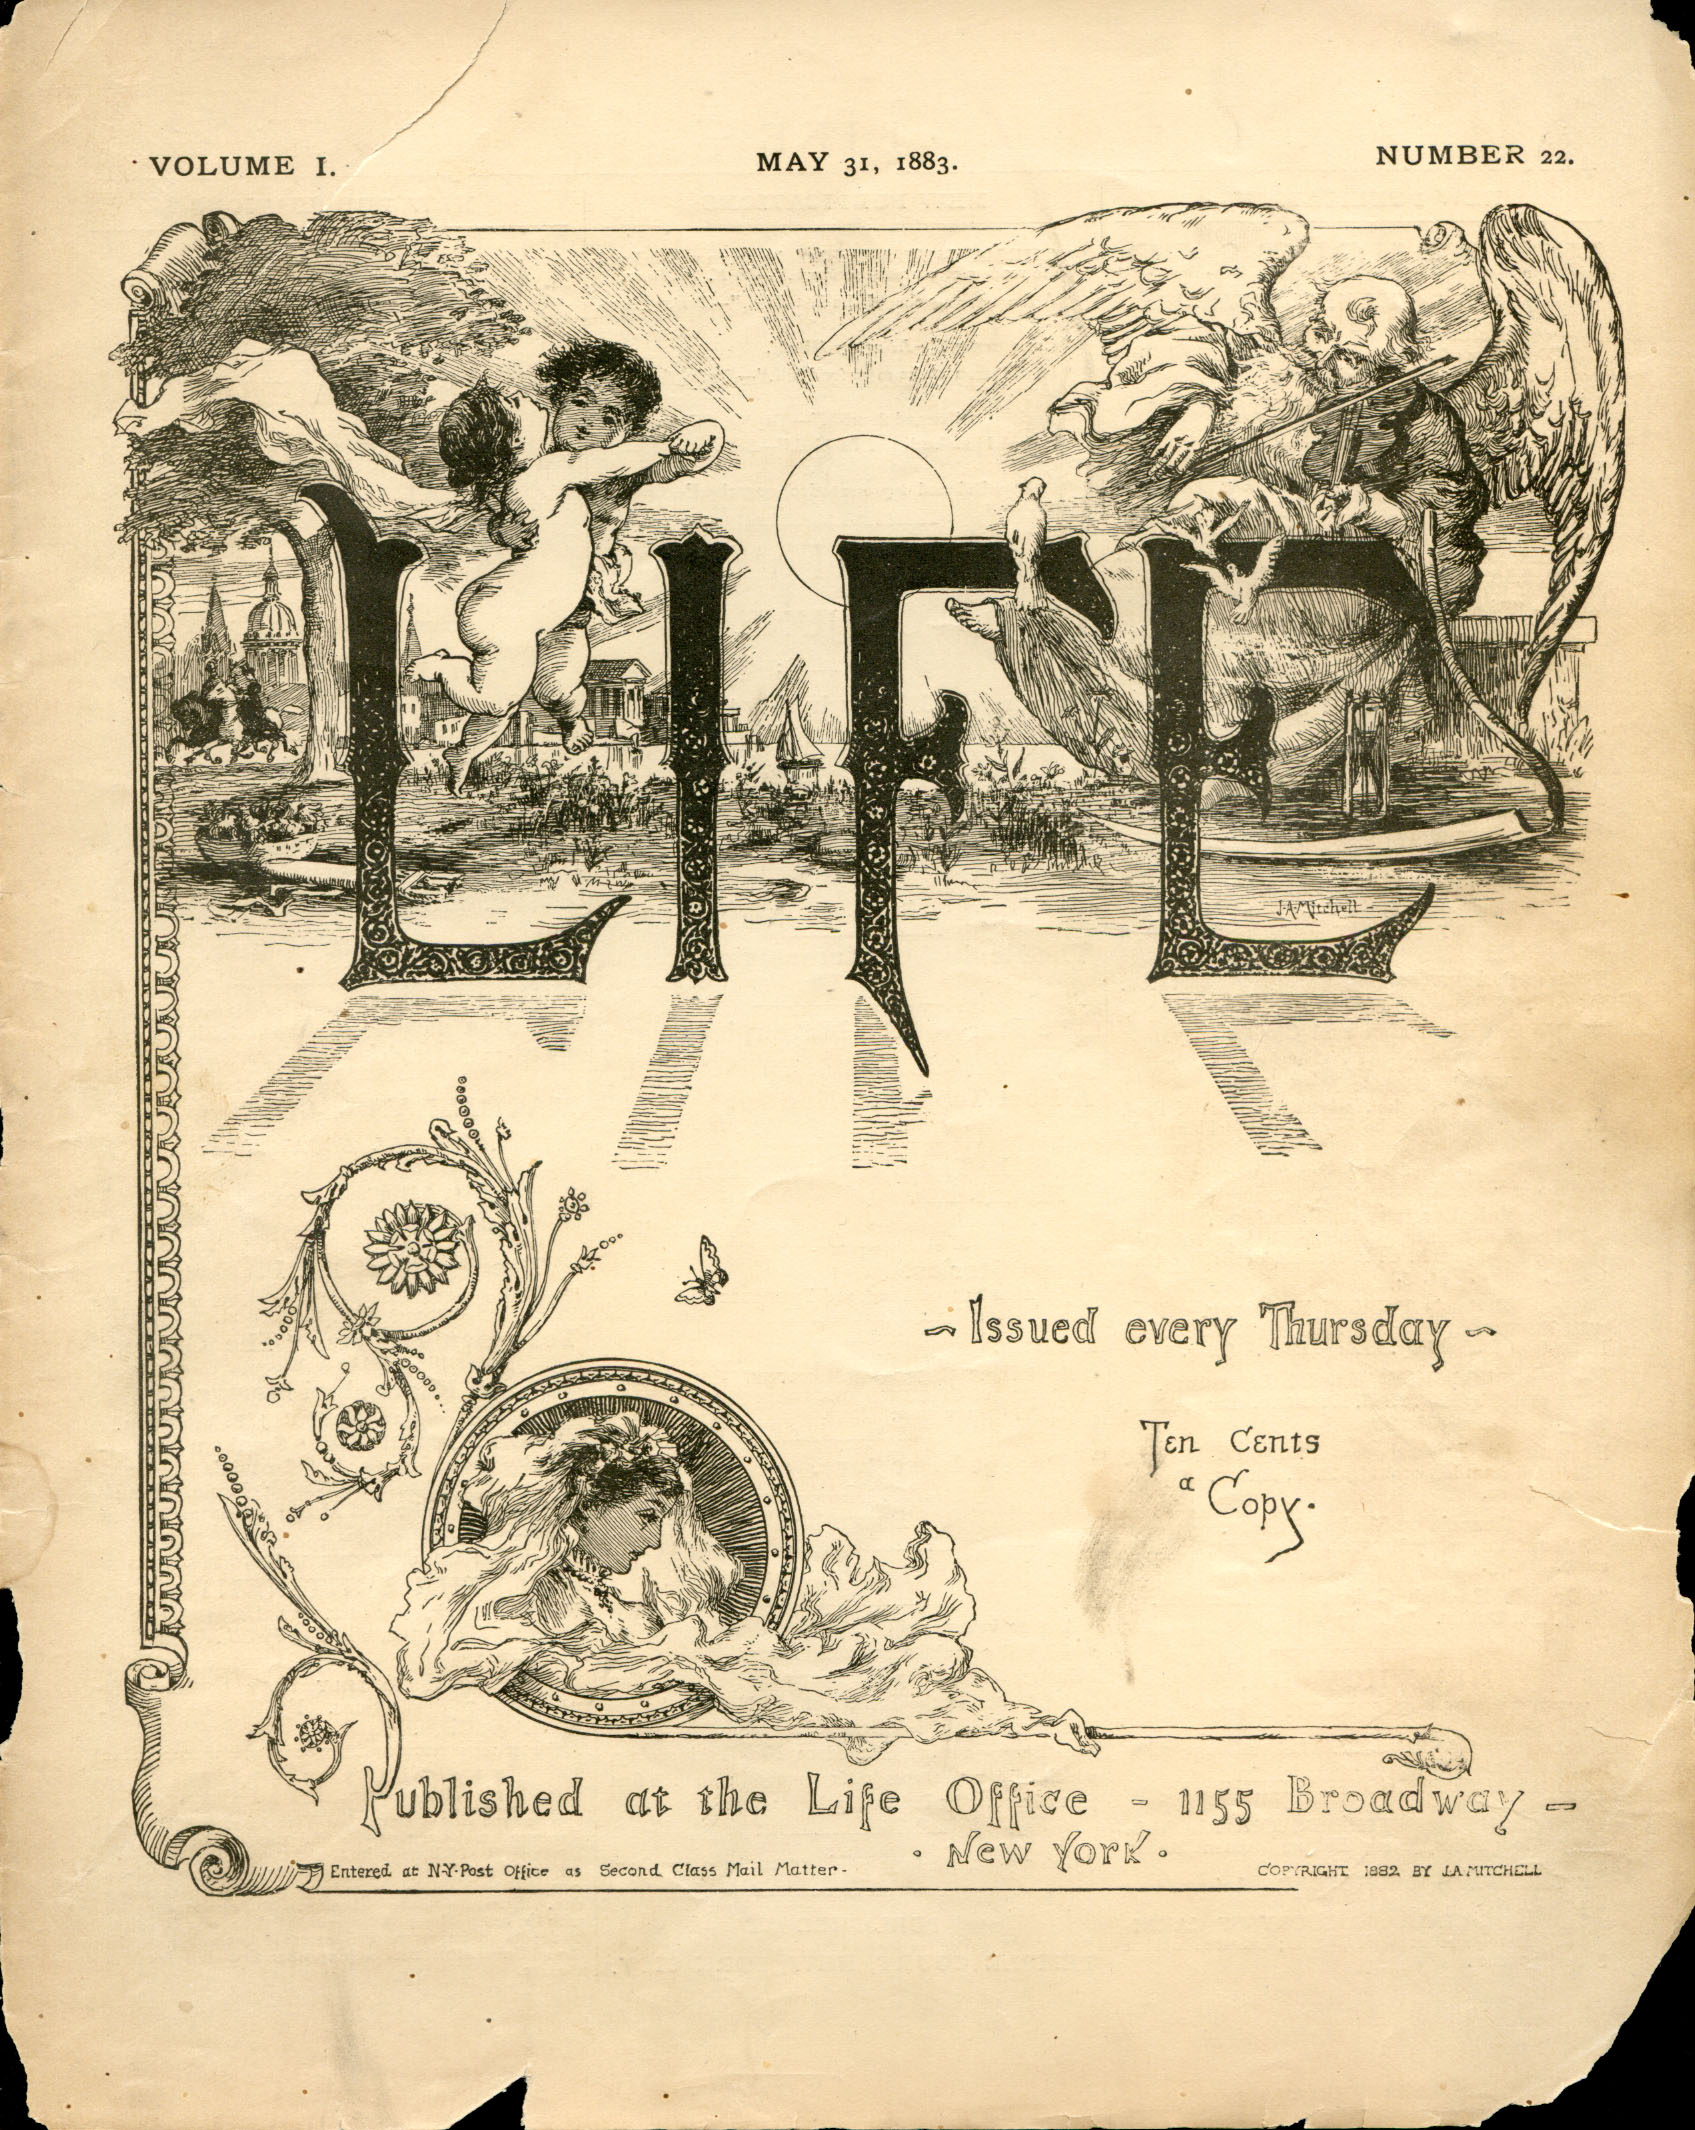 VOLUME I. MAY 31, 1883. NUMBER 22.
LIFE
J.A. Mitchell
~ Issued every Thursday ~
Ten Cents
a Copy.
Published at the Life Office - 1155 Broadway -
· New York ·
Entered at N-Y-Post Office as Second Class Mail Matter-
COPYRIGHT 1882 BY J.A. MITCHELL